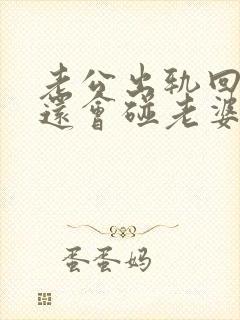 老公出轨回
還會碰老婆
蛋蛋妈